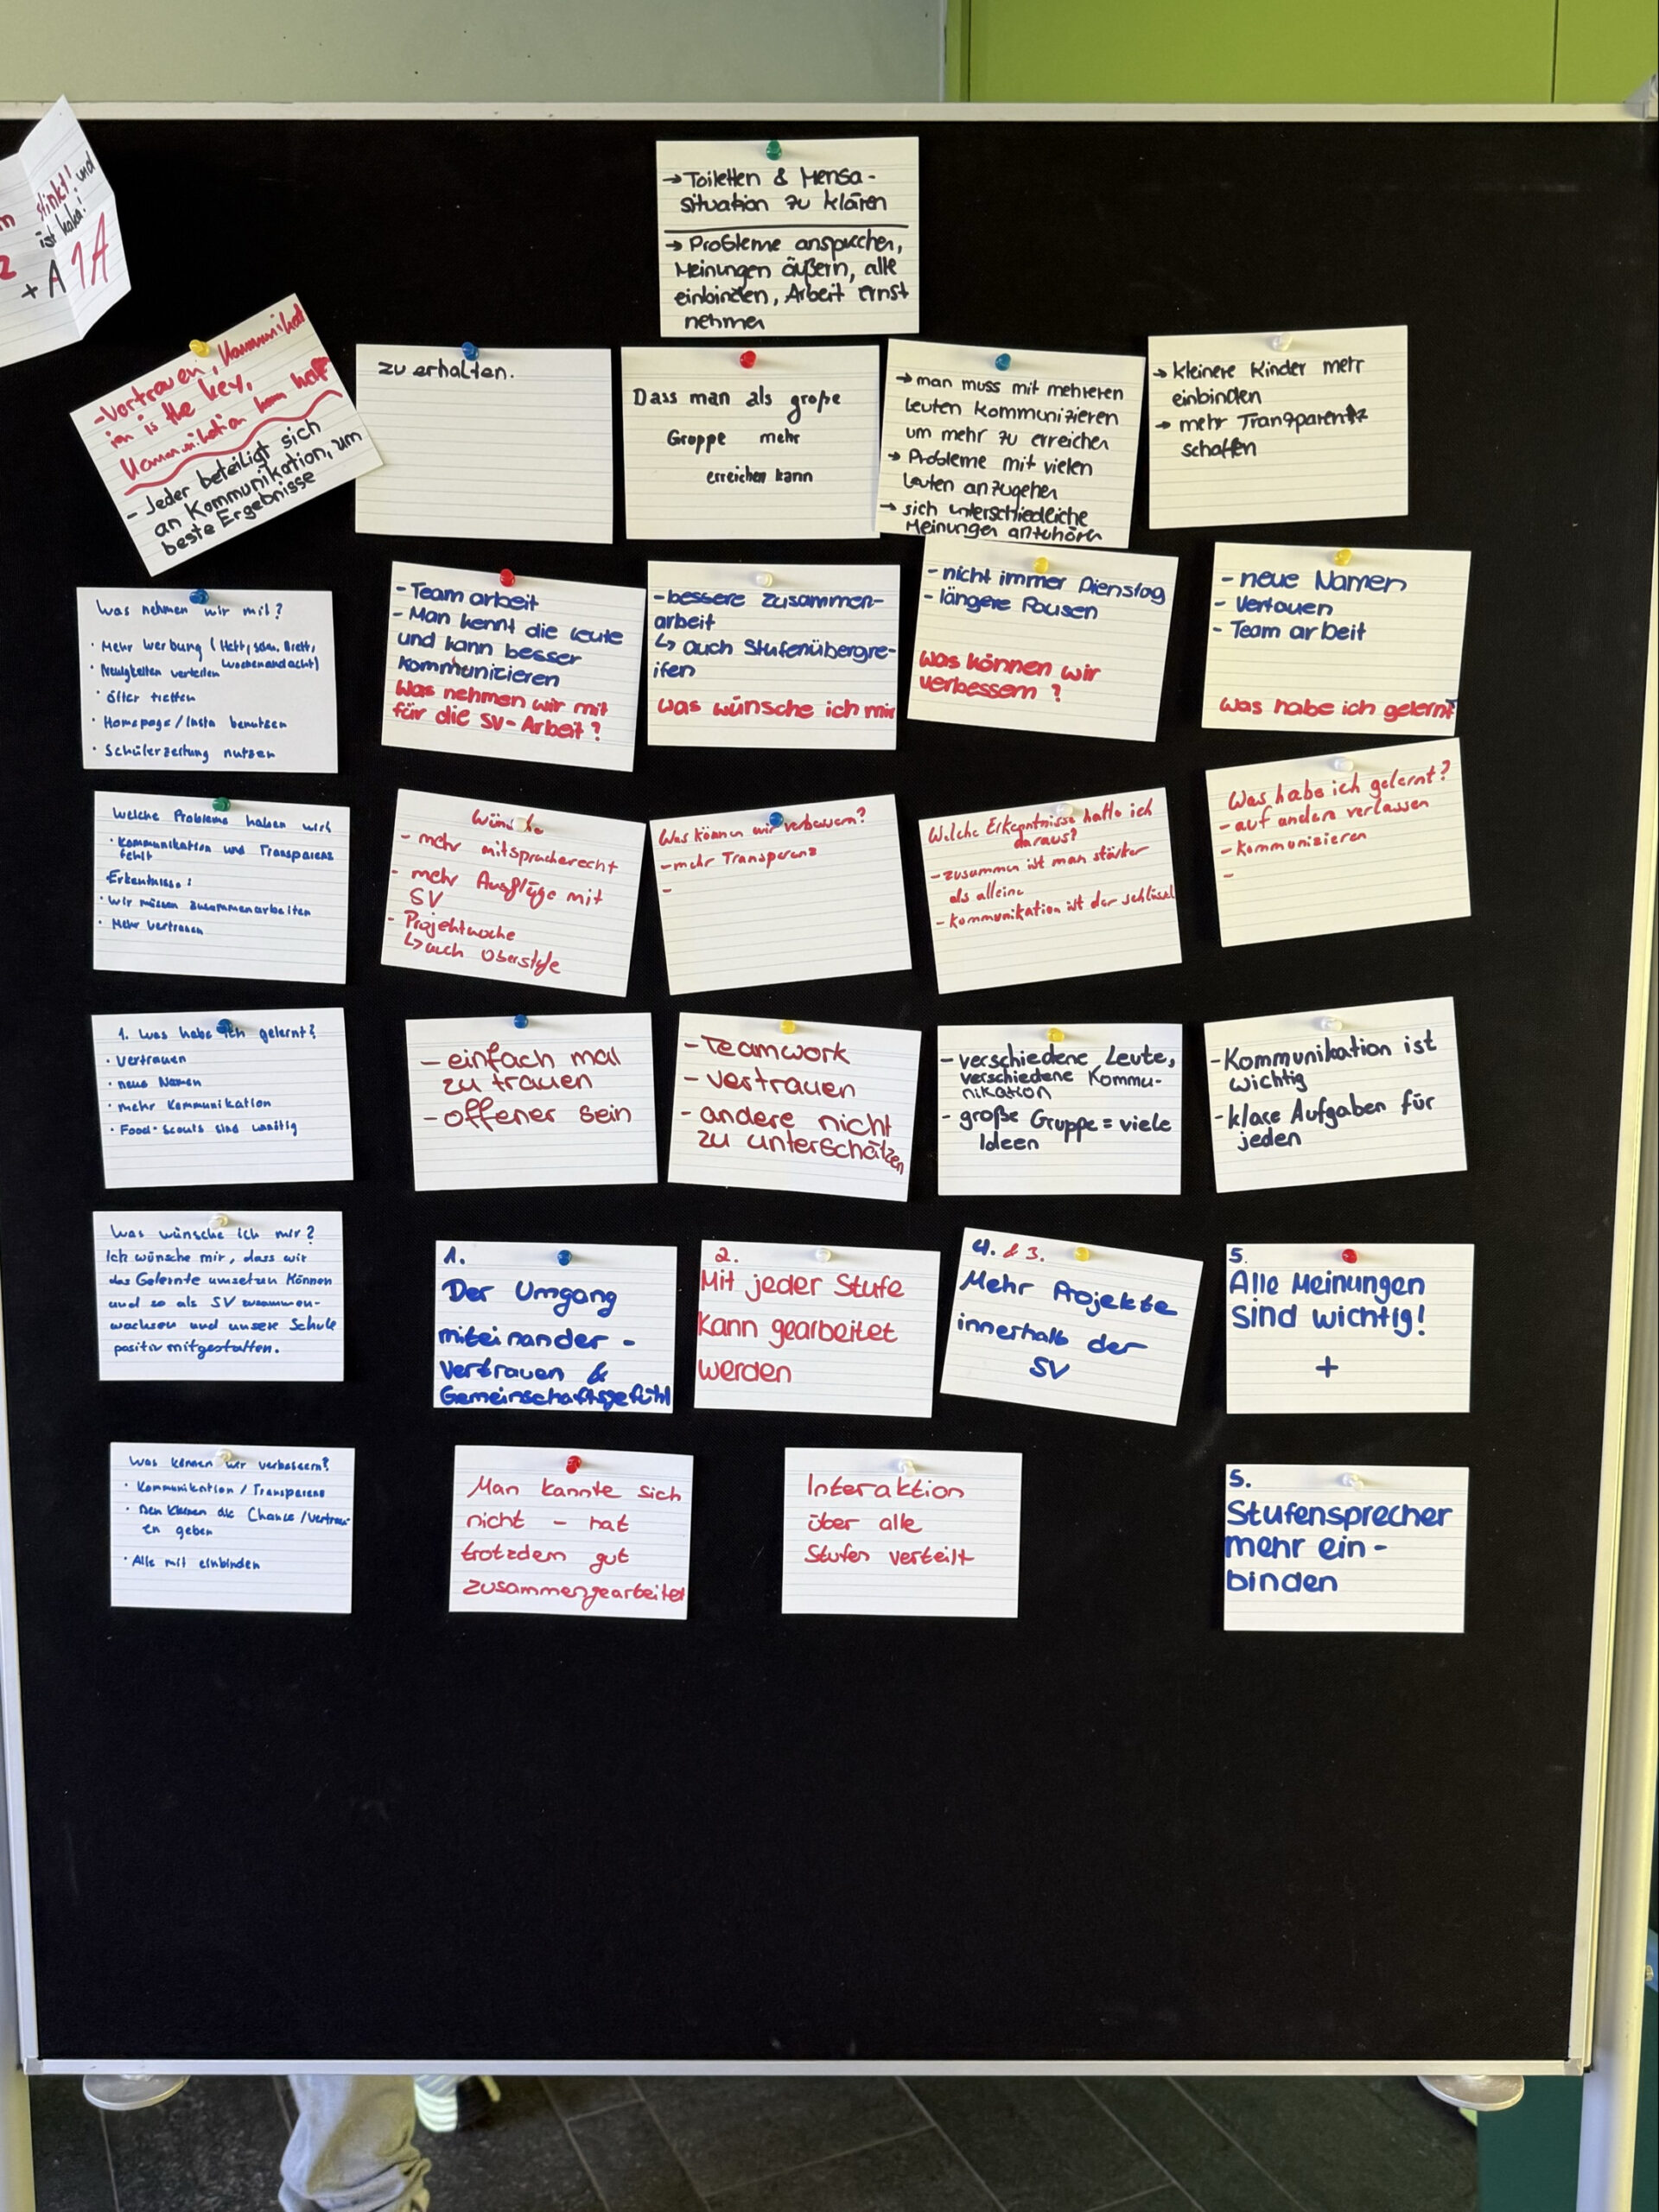 stinkt! und
ist kaka!
2
+ A 1A
→ Toiletten & Mensa-
situation zu klären
→ Probleme ansprechen,
Meinungen äußern, alle
einbinden, Arbeit ernst
nehmen
- Vertrauen,
is the key,
Kommunikation
- Jeder beteiligt sich
an Kommunikation, um
beste Ergebnisse
zu erhalten.
Dass man als große
Gruppe mehr
erreichen kann
→ man muss mit mehreren
Leuten kommunizieren
um mehr zu erreichen
→ Probleme mit vielen
Leuten anzugehen
→ sich unterschiedliche
Meinungen anzuhören
→ kleinere Kinder mehr
einbinden
→ mehr Transparentz
schaffen
Was nehmen wir mit?
• Mehr Werbung (Heft, schw. Brett,
Wochenandacht)
• Neuigkeiten verteilen
• öfter treffen
• Homepage/Insta benutzen
• Schülerzeitung nutzen
- Teamarbeit
- Man kennt die Leute
und kann besser
kommunizieren
Was nehmen wir mit
für die SV-Arbeit?
- bessere Zusammen-
arbeit
↳ auch Stufenübergre-
ifen
was wünsche ich mir
- nicht immer Dienstag
- längere Pausen
Was können wir
verbessern?
- neue Namen
- Vertauen
- Team arbeit
Was habe ich gelernt
Welche Probleme haben wir?
• Kommunikation und Transparenz
fehlt
Erkentniss.:
• Wir müssen zusammenarbeiten
• Mehr vertrauen
Wünsche
- mehr mitspracherecht
- mehr Ausflüge mit
SV
- Projektwoche
↳ auch Oberstufe
Was können wir verbessern?
- mehr Transparenz
-
Welche Erkenntnisse hatte ich
daraus?
- zusammen ist man stärker
als alleine
- Kommunikation ist der schlüssel
Was habe ich gelernt?
- auf andere verlassen
- kommunizieren
-
1. Was habe ich gelernt?
• Vertrauen
• neue Namen
• mehr Kommunikation
• Food-Scouts sind unnötig
- einfach mal
zu trauen
- offener sein
- Teamwork
- vertrauen
- andere nicht
zu unterschätzen
- verschiedene Leute,
verschiedene Kommu-
nikation
- große Gruppe = viele
Ideen
- Kommunikation ist
wichtig
- klare Aufgaben für
jeden
Was wünsche ich mir?
Ich wünsche mir, dass wir
das Gelernte umsetzen können
und so als SV zusammen-
wachsen und unsere Schule
positiv mitgestalten.
1.
Der Umgang
miteinander -
Vertrauen &
Gemeinschaftsgefühl
2.
Mit jeder Stufe
kann gearbeitet
werden
4. & 3.
Mehr Projekte
innerhalb der
SV
5.
Alle Meinungen
sind wichtig!
+
Was können wir verbessern?
• Kommunikation / Transparenz
• Den Kleinen die Chance / Vertrau-
en geben
• Alle mit einbinden
Man kannte sich
nicht - hat
trotzdem gut
zusammengearbeitet
Interaktion
über alle
Stufen verteilt
5.
Stufensprecher
mehr ein-
binden